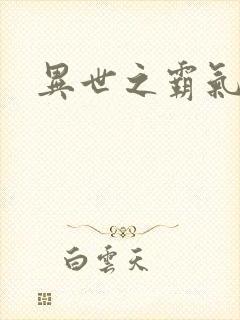 異世之霸氣
白雲天